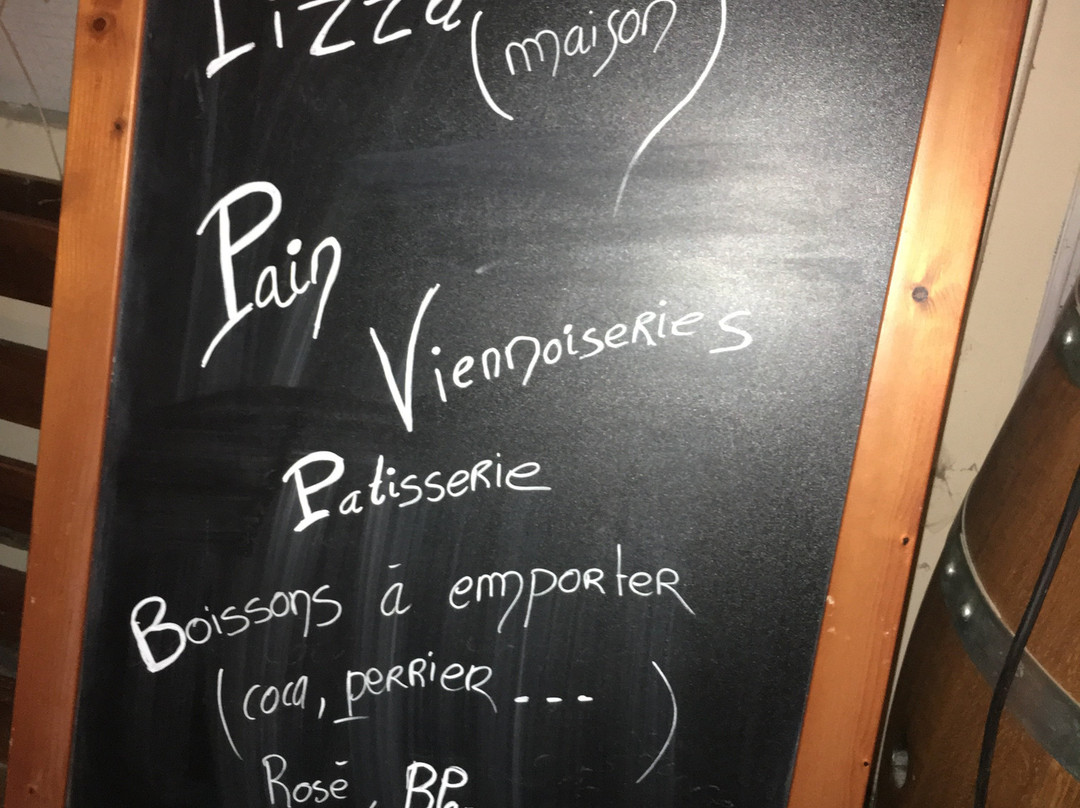 Pizza (maison)
Pain
Viennoiseries
Patisserie
Boissons à emporter
(coca, perrier ---)
Rosé,